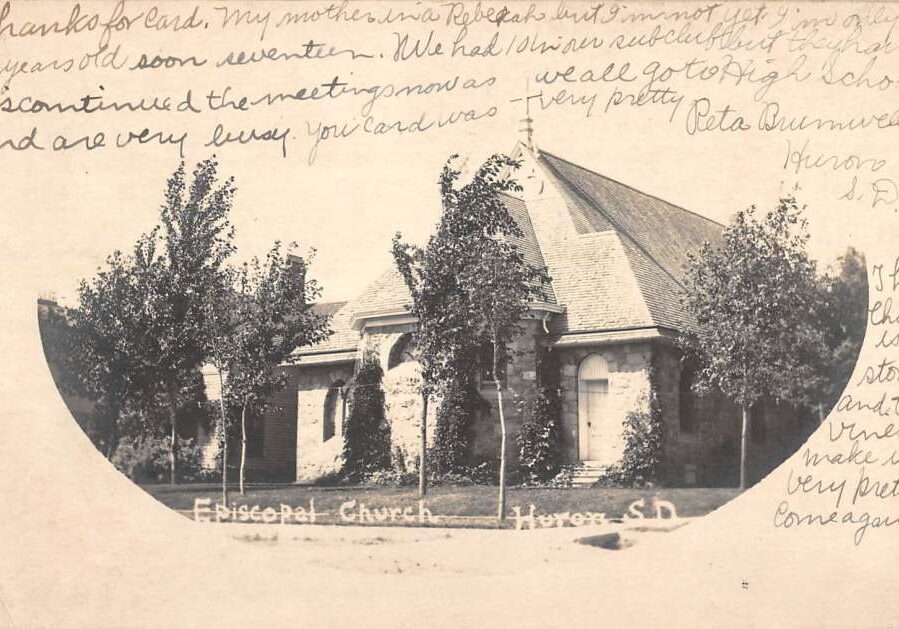 hanks for card. My mother is a Rebekah but I'm not yet. I'm only
years old soon seventeen. We had 10 in our subclub but they hav
scontinued the meetings now as we all go to High Scho
nd are very busy. You card was very pretty
Reta Brumwell
Huron
S.D.
Th
tha
is
sto
and t
vines
make i
very pret
Come again
Episcopal Church Huron S.D.